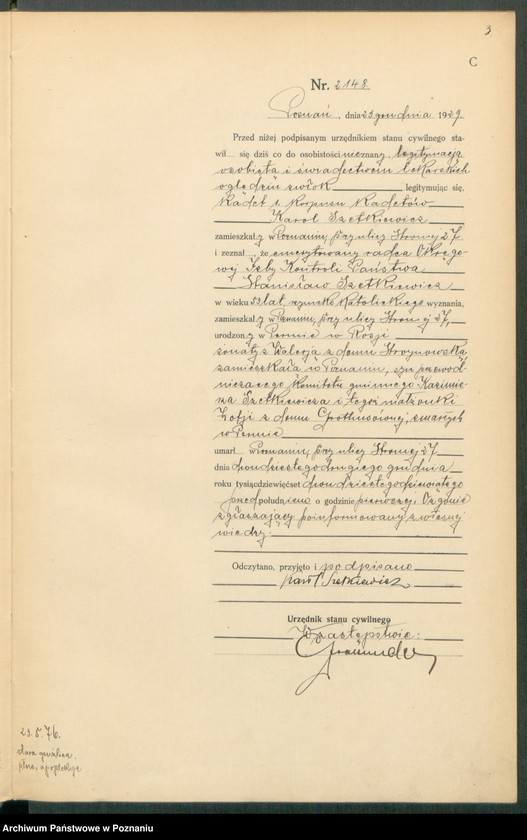 3
C
Nr. 2148
Poznań, dnia 23 grudnia 1929.
Przed niżej podpisanym urzędnikiem stanu cywilnego sta-
wił się dziś co do osobistości nieznany, legitymacją
osobistą i świadectwem lekarskich
oględzin zwłok legitymując się,
Kadet 1. Korpusu Kadetów
Karol Szetkiewicz
zamieszkały w Poznaniu, przy ulicy Stromej 27
i zeznał, że emerytowany radca Okręgo-
wej Izby Kontroli Państwa
Stanisław Szetkiewicz
w wieku 53 lat, rzymsko katolickiego wyznania,
zamieszkały w Poznaniu, przy ulicy Stromej 27,
urodzony w Permie w Rosji
żonaty z Walerją z domu
zamieszkałą w Poznaniu, syn przewod-
niczącego Komitetu gminnego Kazimie-
rza Szetkiewicza i tegoż małżonki
Zofji z domu zmarłych
w Permie
umarł w Poznaniu, przy ulicy Stromej 27
dnia dwudziestego drugiego grudnia
roku tysiącdziewięćset dwudziestego dziewiątego
przed południem o godzinie pierwszej. O zgonie
zgłaszający poinformowany z własnej
wiedzy.
Odczytano, przyjęto i podpisano
Karol Szetkiewicz
Urzędnik stanu cywilnego
W zastępstwie:
23.5.76.
Archiwum Państwowe w Poznaniu